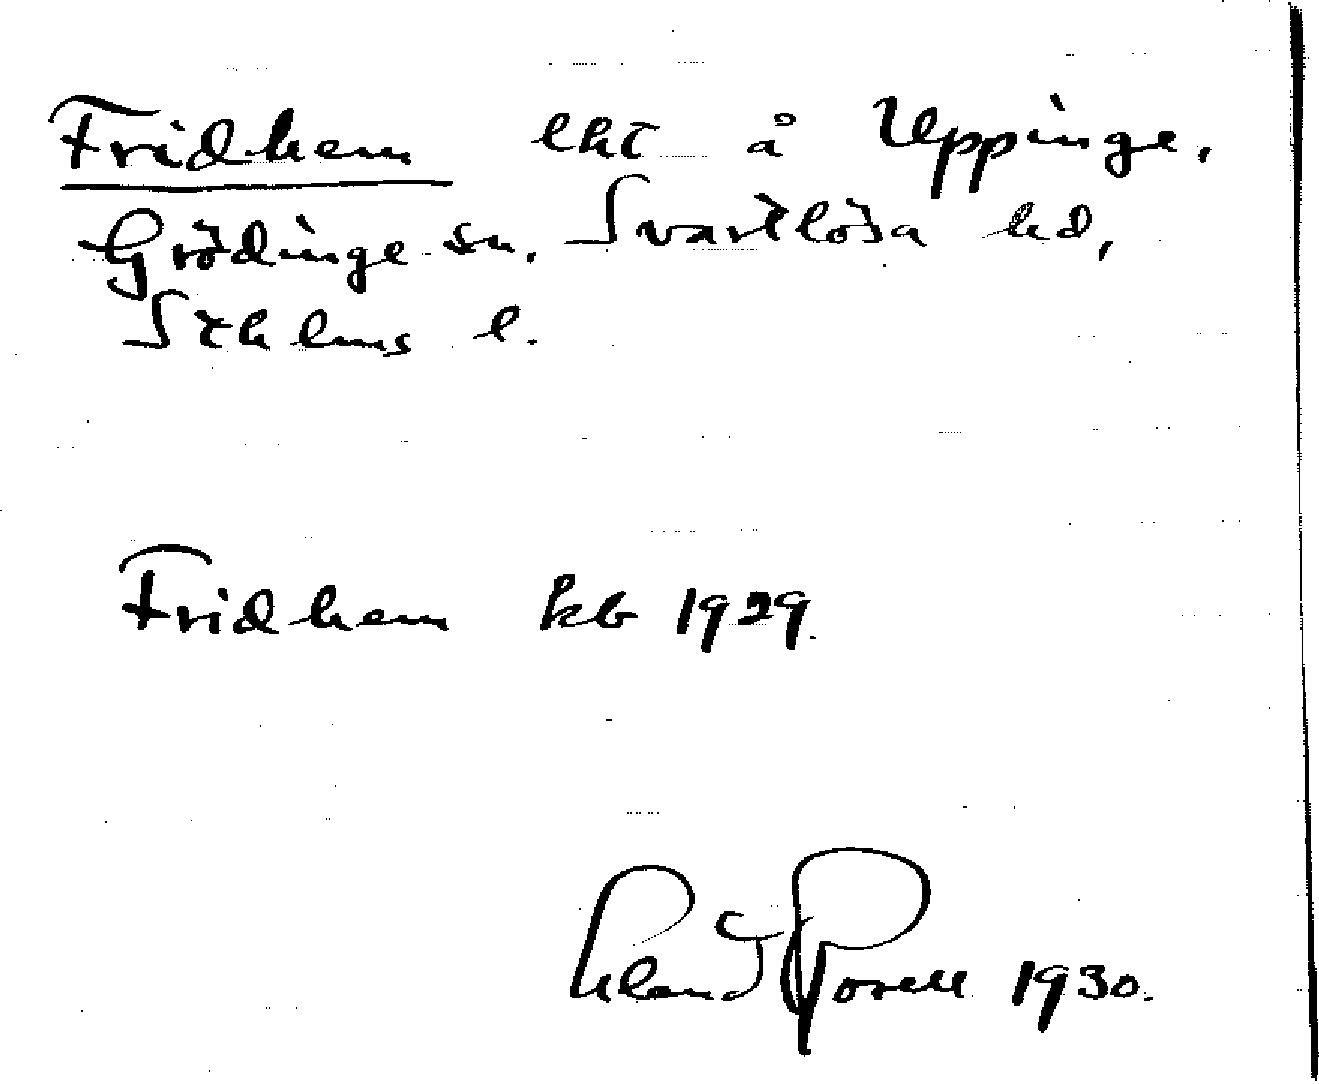 Fridhem lht å Uppinge,
Grödinge sn, Svartlösa hd,
Sthlms l.
Fridhem kb 1929.
1930.